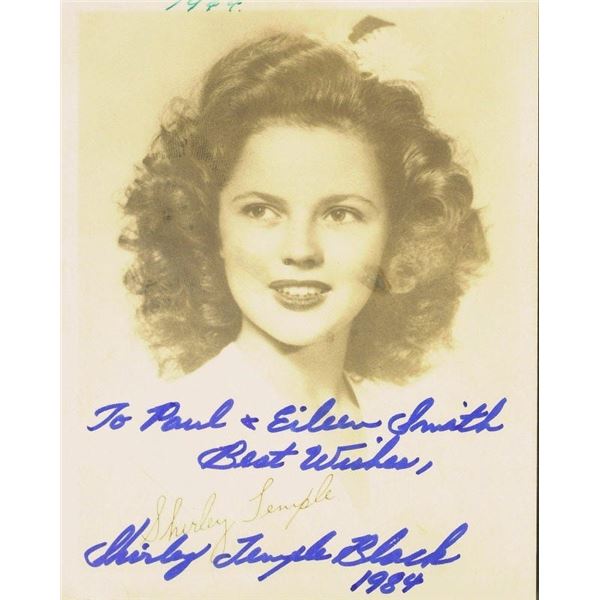 1984.
To Paul & Eileen Smith
Best Wishes,
Shirley Temple
Shirley Temple Black
1984